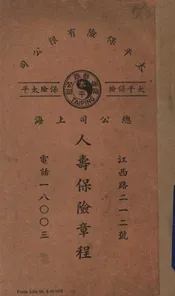 司公限有險保平太
平太險保
險保平太
TAIPING
海上司公總
人壽保險章程
江西路二一二號
電話一八〇〇三